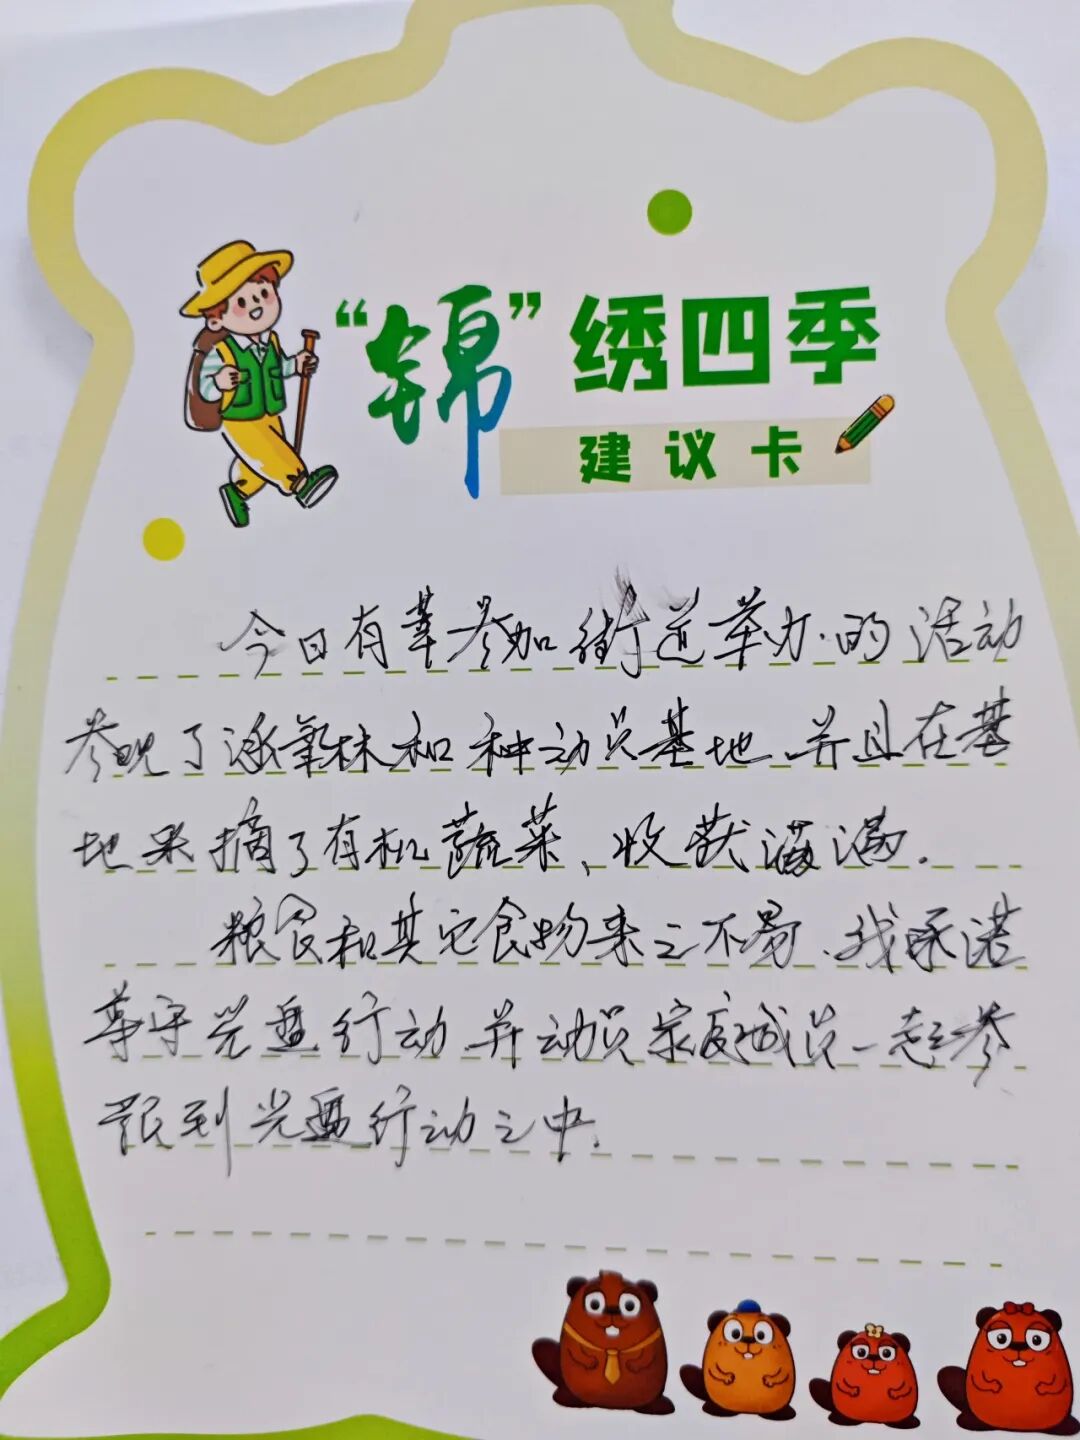 “锦”绣四季
建议卡
今日有幸参加街道举办的活动
参观了涵氧林和种动员基地,并且在基
地采摘了有机蔬菜、收获满满.
粮食和其它食物来之不易、我承诺
遵守光盘行动,并动员家庭成员一起参
到光盘行动之中.